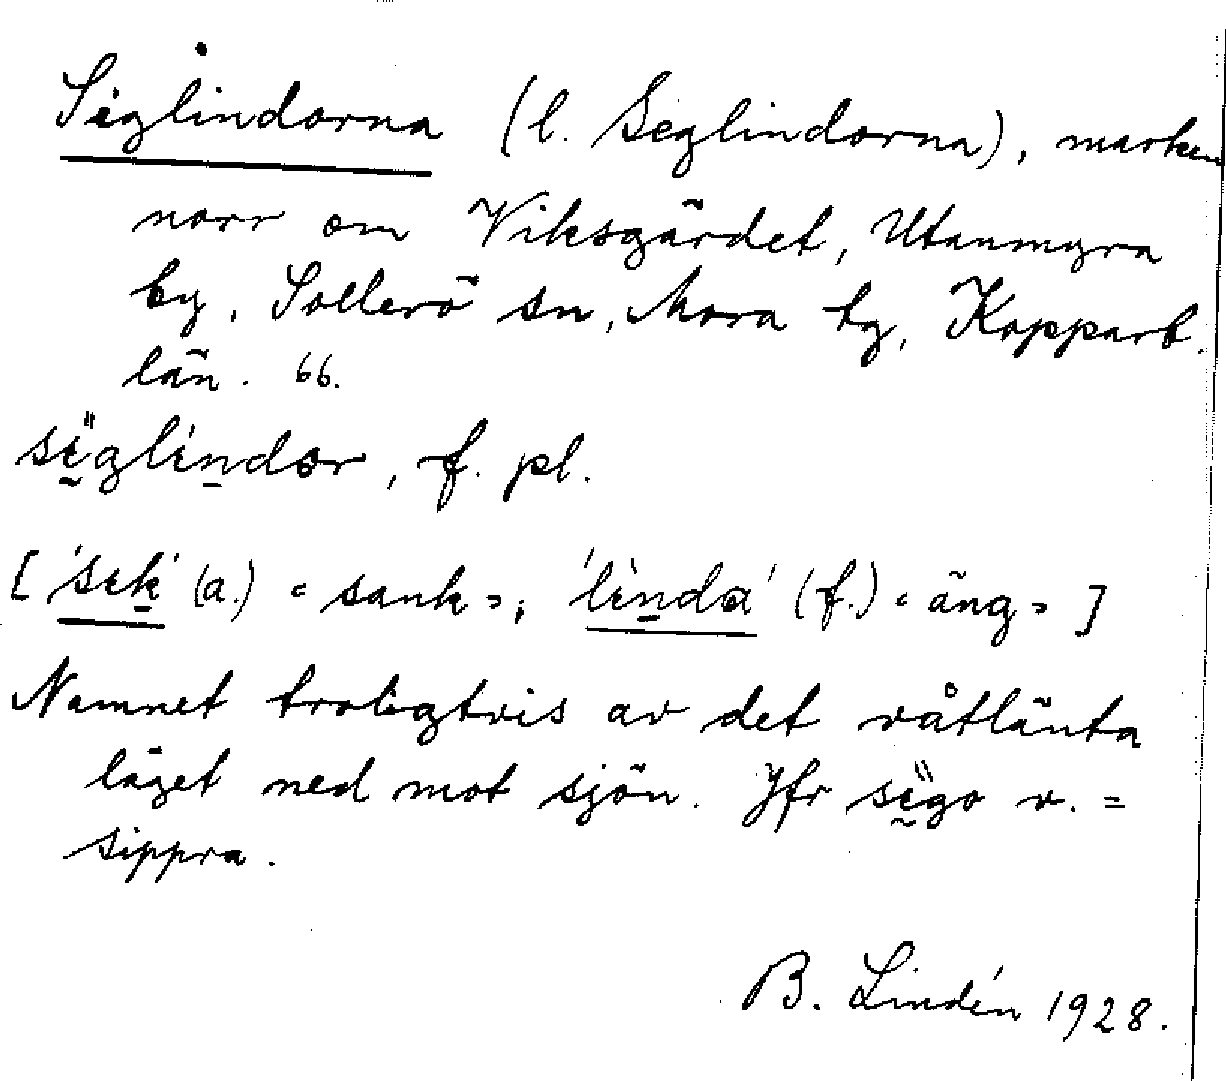 Siglindorna (l. Seglindorna), marken
norr om Viksgärdet, Utanmyra
by, Sollerö sn, Mora tg, Kopparb.
län. 66.
sïglindor, f. pl.
['sɪk' (a.) = sank =; 'linda' (f.) = äng = ]
Namnet troligtvis av det våtlänta
läget ned mot sjön. Jfr sïgo v. =
sippra.
B. Lindén 1928.